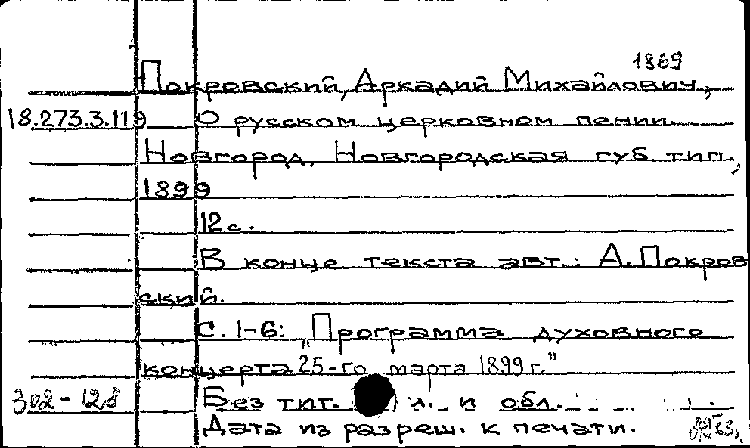 1869
Покровский, Аркадий Михайлович,
18.273.3.119 О русском церковном пении.
Новгород, Новгородская губ. тип.,
1899
12 с.
В конце текста авт.: А. Покров
ский.
С. 1-6: „Программа духовного
концерта 25-го марта 1899 г."
302-128 Без тит. л. и обл.
Дата из разреш. к печати.